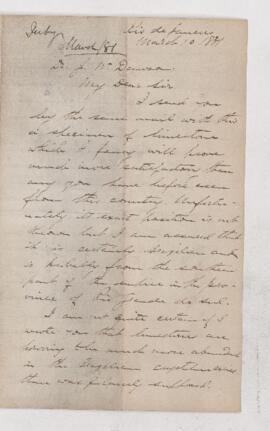 Derby
March/81
Rio de Janeiro
March 10 81
Dr. J. Wm Dawson
My Dear Sir
I send you
by the same mail with this
a specimen of limestone
which I fancy will prove
much more satisfactory than
any you have before seen
from this country. Unfortu-
nately its exact position is not
known but I am assured that
it is certainly Brazilian and
is probably from the southern
part of the empire in the pro-
vince of Rio Grande do Sul.
I am not quite certain if I
wrote you that limestones are
proving to be much more abundant
in the Brazilian crystallines
than was previously supposed.